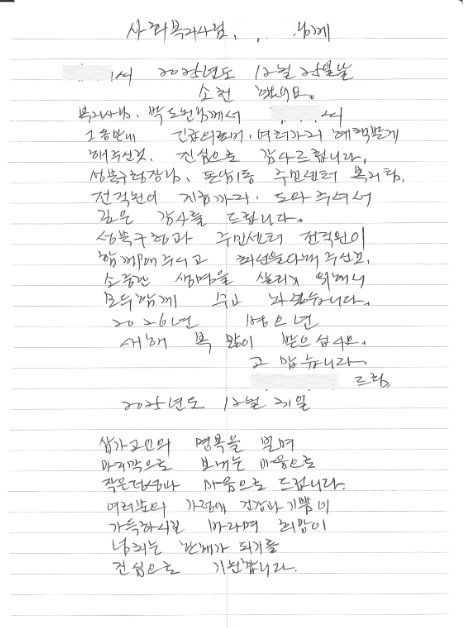 사회복지사님, . 님께
씨 2025년도 12월 25일날
소천 했네요.
복지사님, 박도원님께서 씨
그동안에 긴급의료비, 여러가지 혜택받게
해주신것, 진심으로 감사드립니다,
성북구청장님, 돈암1동 주민센터 복지팀,
전직원이 지금까지 도와주셔서
깊은 감사를 드립니다.
성북구청과 주민센터 전직원이
함께해주시고 최선을다해주신것,
소중한 생명을 살리기 위해서
모두함께 수고 하셨습니다.
2026년 병오년
새해 복 많이 받으십시요.
고맙습니다.
드림,
2025년도 12월 31일
삼가고인의 명복을 빌며
마지막으로 보내는 마음으로
작은정성과 마음으로 드립니다.
여러분의 가정에 건강과 기쁨이
가득하시길 바라며 희망이
넘치는 한해가 되기를
진심으로 기원합니다.